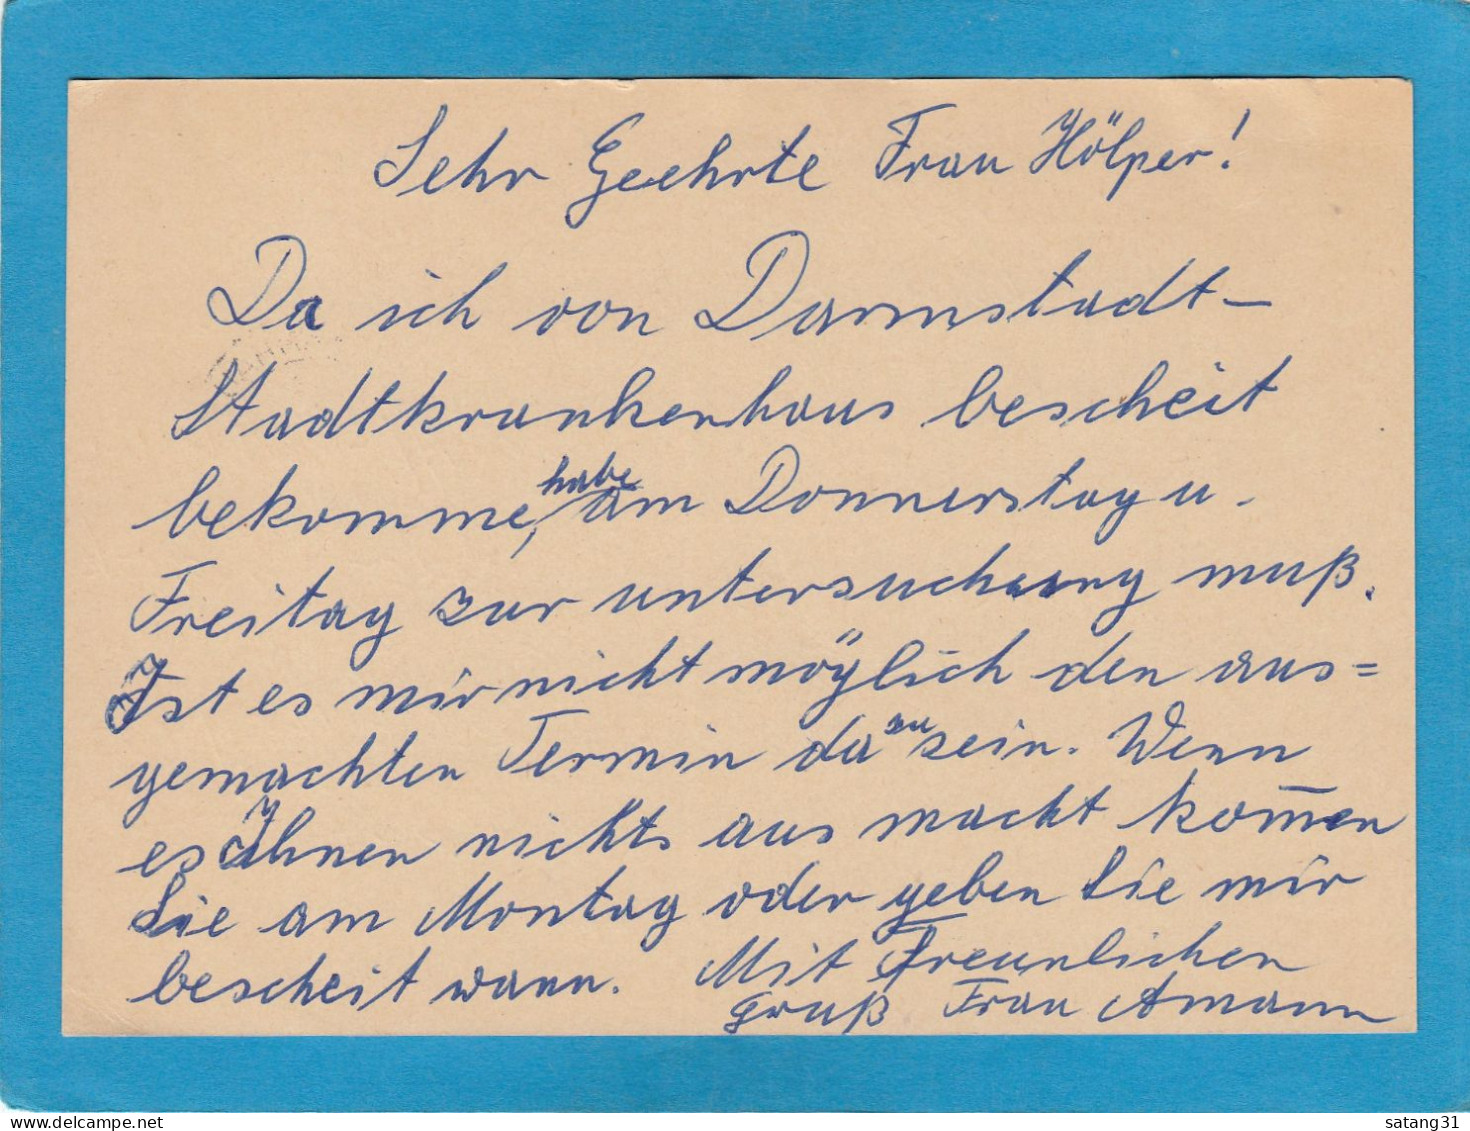 Sehr Geehrte Frau Hölper!
Da ich von Darmstadt-
Stadtkrankenhaus bescheit
bekomme, habe am Donnerstag u.
Freitag zur untersuchung muß.
Ist es mir nicht möglich den aus=
gemachten Termin da zu sein. Wenn
es Ihnen nichts aus macht kom̅en
Sie am Montag oder geben Sie mir
bescheit wann. Mit Freunlichen
gruß Frau Amann
satang31